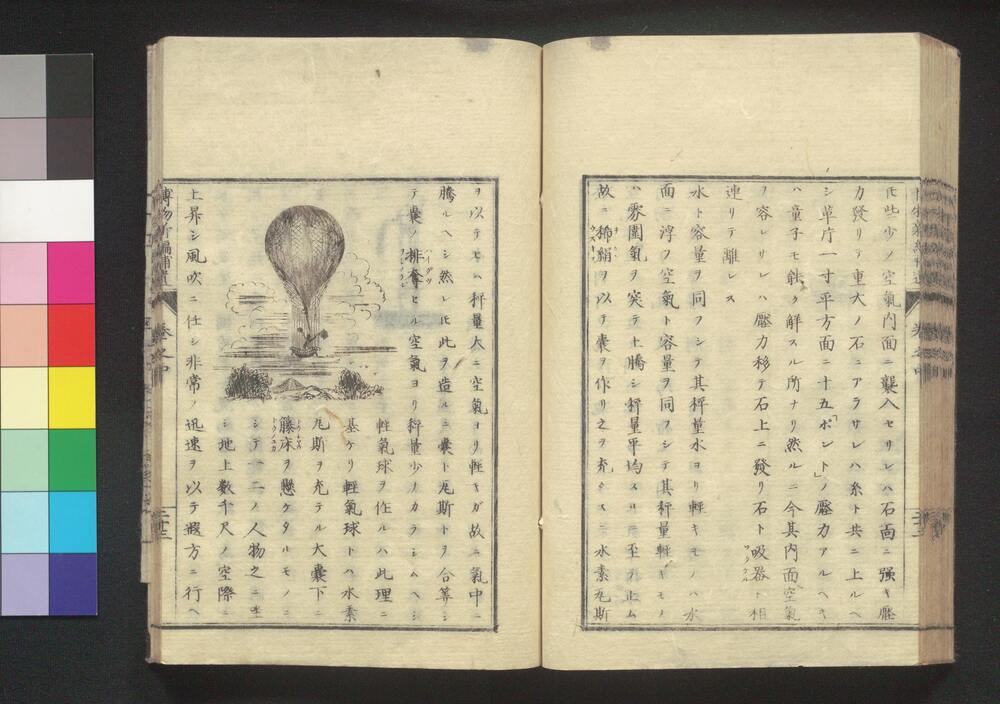 𪜈些少ノ空氣内面ニ襲入セサレハ石面ニ強キ壓
力發リテ重大ノ石ニアラサレハ糸ト共ニ上ルヘ
シ葦庁一寸平方面ニ十五「ポント」ノ壓力アルヘキ
ハ童子モ能ク解スル所ナリ然ルニ今其内面空氣
ヲ容レサレハ壓力移テ石上ニ發リ石ト吸器ト相
連リテ離レス
水ト容量ヲ同フシテ其秤量水ヨリ輕キモノハ水
面ニ浮フ空氣ト容量ヲ同フシテ其秤量輕キモノ
ハ雰圍氣ヲ突テ上騰シ秤量平均スルニ至テ止ム
故ニ絹ヲ以テ嚢ヲ作リ之ヲ充タスニ水素瓦斯
ヲ以テセハ秤量大ニ空氣ヨリ輕キガ故ニ氣中ニ
騰ルヘシ然レ𪜈此ヲ造ルニ嚢ト瓦斯トヲ合算シ
テ嚢ノ排奪セル空氣ヨリ秤量少ノカラシムヘシ
輕氣球ヲ作ルハ此理ニ
基ケリ輕氣球トハ水素
瓦斯ヲ充テル大嚢下ニ
籐床ヲ懸ケタルモノニ
シテ一二ノ人物之ニ坐
シ地上數千尺ノ空際ニ
上昇シ風吹ニ任シ非常ノ迅速ヲ以テ遐方ニ行ヘ
博物新編補遺 卷之中 二十三